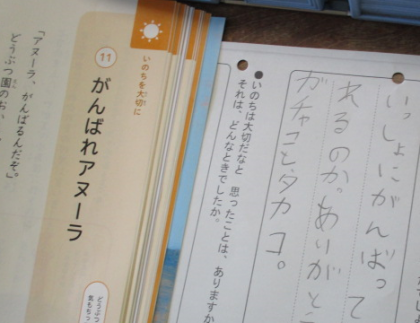 いのちを大切に
11 がんばれアヌーラ
「アヌーラ、がんばるんだぞ。」
どうぶつ園の
どうぶつ
気もち
いっしょにがんばって
れるのか。ありがと
ガチャコとタカコ。
●いのちは大切だなと 思ったことは、ありますか
それは、どんなときでしたか。